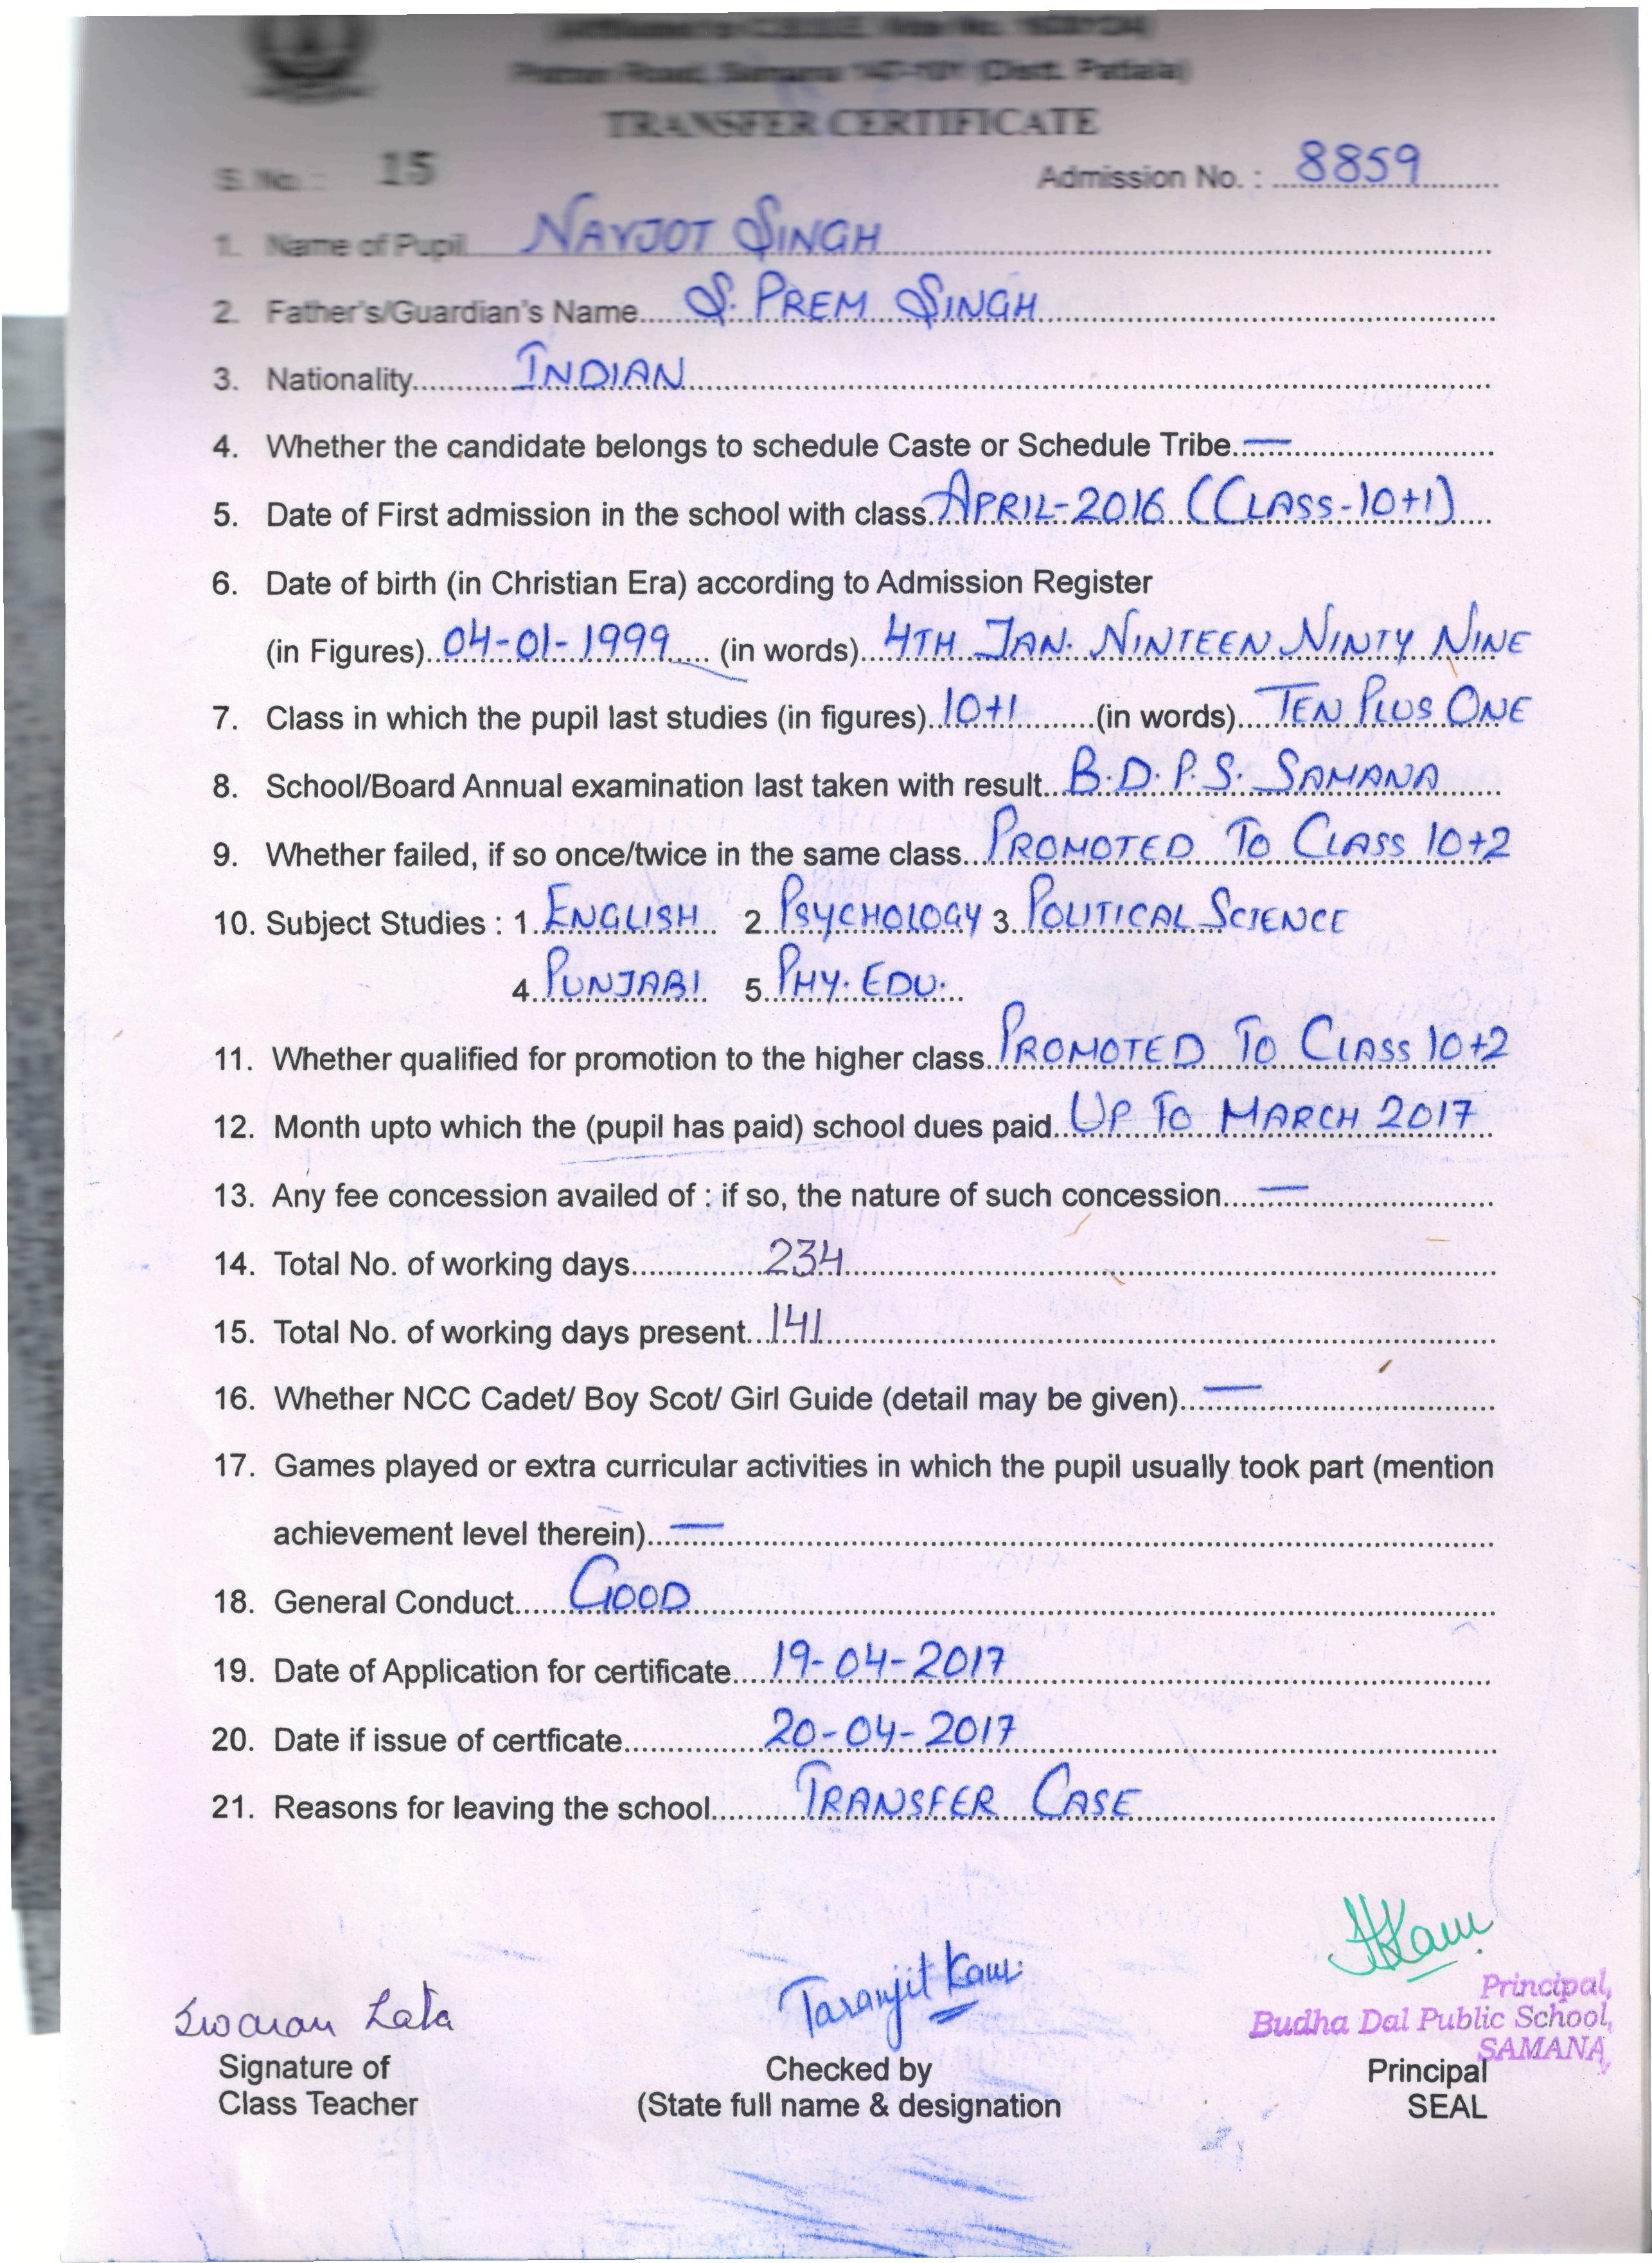 Road, Samana 147-101 (Distt. Patiala)
TRANSFER CERTIFICATE
S. No. : 15 Admission No. : 8859
1. Name of Pupil NAVJOT SINGH
2. Father's/Guardian's Name S. PREM SINGH
3. Nationality INDIAN
4. Whether the candidate belongs to schedule Caste or Schedule Tribe —
5. Date of First admission in the school with class APRIL-2016 (CLASS-10+1)
6. Date of birth (in Christian Era) according to Admission Register
(in Figures) 04-01-1999 (in words) 4TH JAN. NINTEEN NINTY NINE
7. Class in which the pupil last studies (in figures) 10+1 (in words) TEN PLUS ONE
8. School/Board Annual examination last taken with result B.D.P.S. SAMANA
9. Whether failed, if so once/twice in the same class PROMOTED TO CLASS 10+2
10. Subject Studies : 1. ENGLISH 2. PSYCHOLOGY 3. POLITICAL SCIENCE
4. PUNJABI 5. PHY. EDU.
11. Whether qualified for promotion to the higher class PROMOTED TO CLASS 10+2
12. Month upto which the (pupil has paid) school dues paid UP TO MARCH 2017
13. Any fee concession availed of : if so, the nature of such concession —
14. Total No. of working days 234
15. Total No. of working days present 141
16. Whether NCC Cadet/ Boy Scot/ Girl Guide (detail may be given) —
17. Games played or extra curricular activities in which the pupil usually took part (mention
achievement level therein) —
18. General Conduct GOOD
19. Date of Application for certificate 19-04-2017
20. Date if issue of certficate 20-04-2017
21. Reasons for leaving the school TRANSFER CASE
Swaran Lata Taranjit Kaur
Principal,
Budha Dal Public School,
SAMANA,
Signature of Checked by Principal
Class Teacher (State full name & designation SEAL